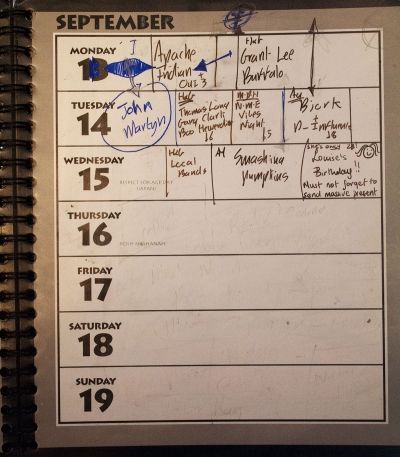 SEPTEMBER
MONDAY
13
I
Apache
Indian
Grant Lee
Buffalo
TUESDAY
14
John
Martyn
Thomas Lang
Gary Clark
N.M.E
Vibes
Night
Bjork
WEDNESDAY
15
RESPECT FOR AGE DAY
(JAPAN)
Local
Bands
Smashing
Pumpkins
Louise's
Birthday!!
Must not forget to
send massive present
THURSDAY
16
ROSH HASHANAH
FRIDAY
17
SATURDAY
18
SUNDAY
19